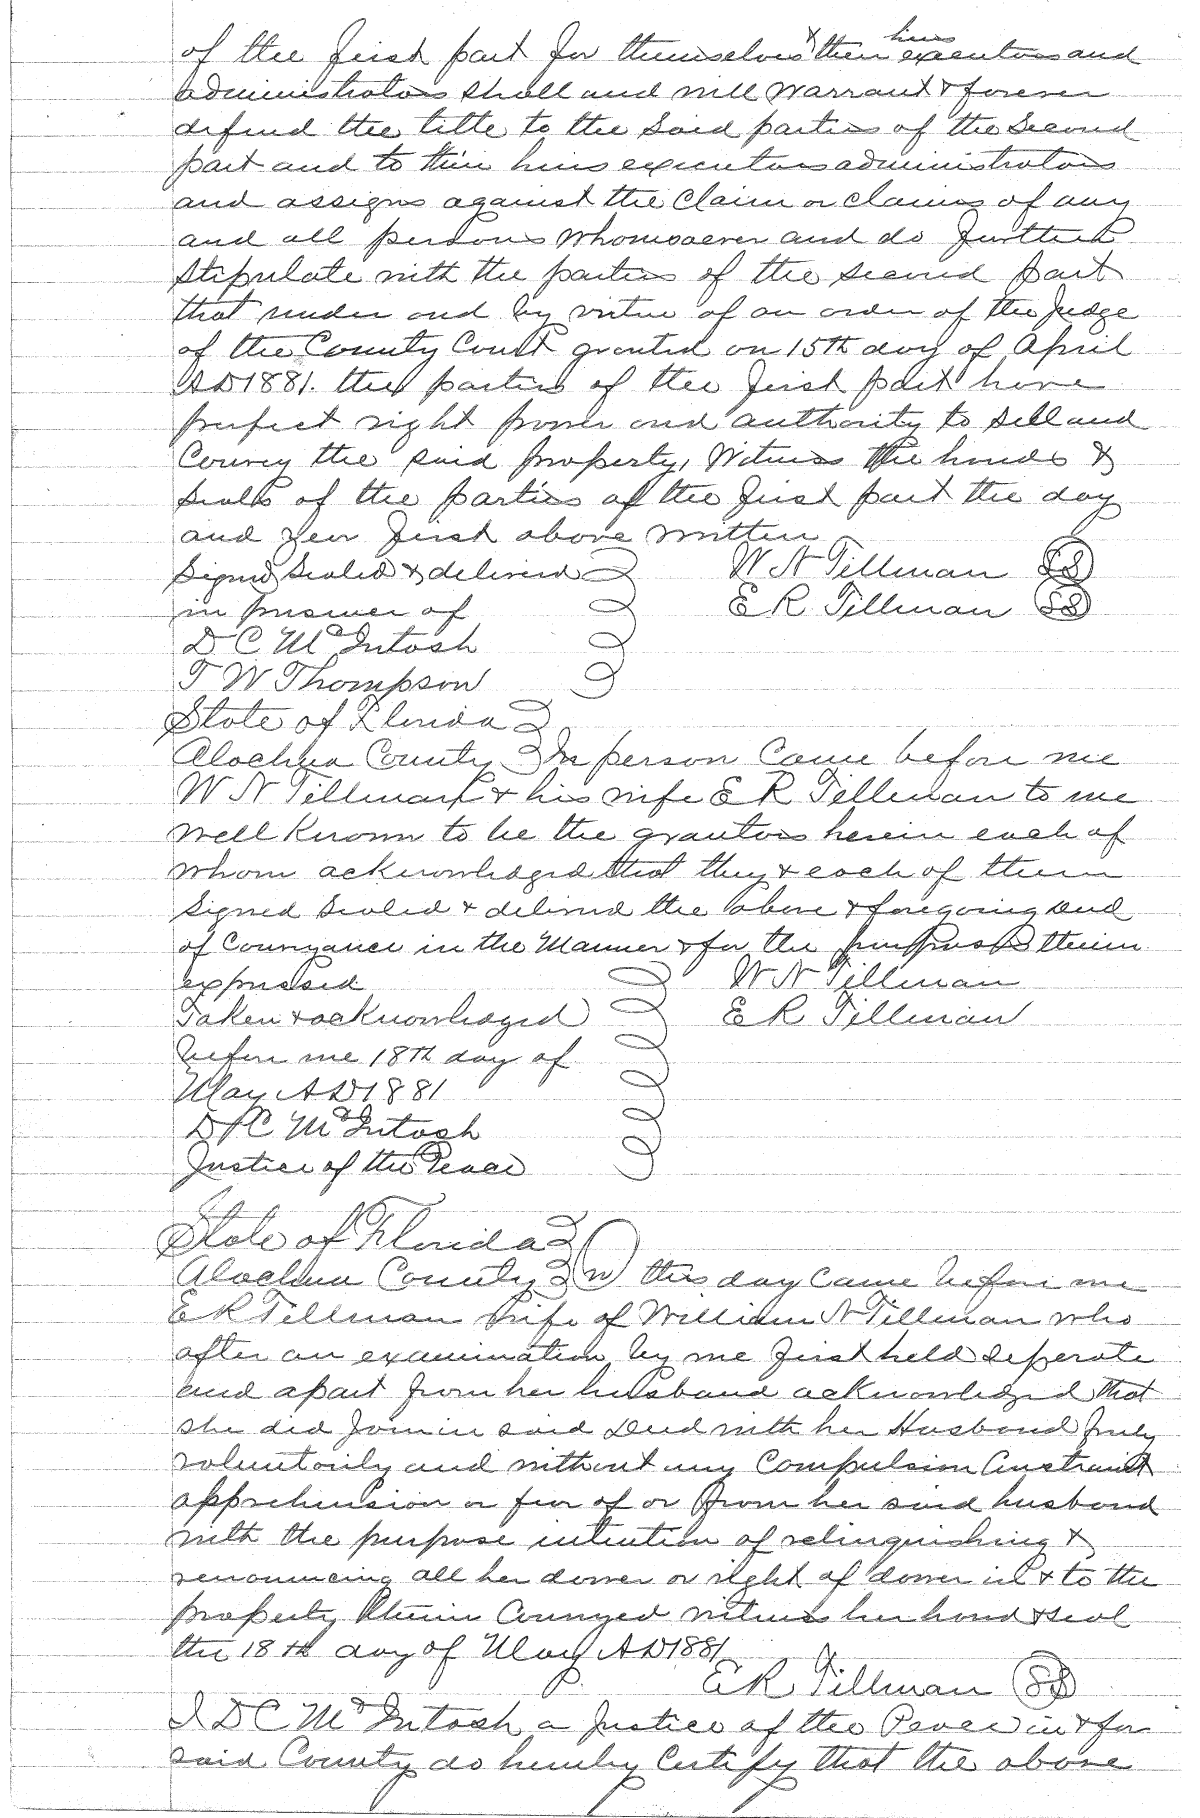 of the first part for themselves & their heirs executors and
administrators shall and will warrant & forever
defend the title to the said parties of the second
part and to their heirs executors administrators
and assigns against the claim or claims of any
and all persons whomsoever and do further
stipulate with the parties of the second part
that under and by virtue of an order of the Judge
of the County Court granted on 15th day of April
AD 1881. the parties of the first part have
perfect right power and authority to sell and
Convey the said property, Witness the hands &
Seals of the parties of the first part the day
and year first above written
Signed Sealed & delivered W N Tillman SS
in presence of E R Tillman SS
D C McIntosh
T W Thompson
State of Florida
Alachua County In person Came before me
W N Tillman & his wife E R Tillman to me
well Known to be the grantors herein each of
whom acknowledged that they & each of them
signed Sealed & delivered the above & foregoing deed
of Conveyance in the Manner & for the purposes therein
expressed W N Tillman
Taken & acknowledged E R Tillman
before me 18th day of
May AD 1881
D C McIntosh
Justice of the Peace
State of Florida
Alachua County On this day Came before me
E R Tillman wife of William N Tillman who
after an examination by me first held seperate
and apart from her husband acknowledged that
she did Join in said Deed with her Husband freely
voluntarily and without any Compulsion Constraint
apprehension or fear of or from her said husband
with the purpose intention of relinquishing &
renouncing all her dower or right of dower in & to the
property therein Conveyed witness her hand & seal
the 18th day of May AD 1881
E R Tillman SS
I D C McIntosh a Justice of the Peace in & for
said County do hereby Certify that the above